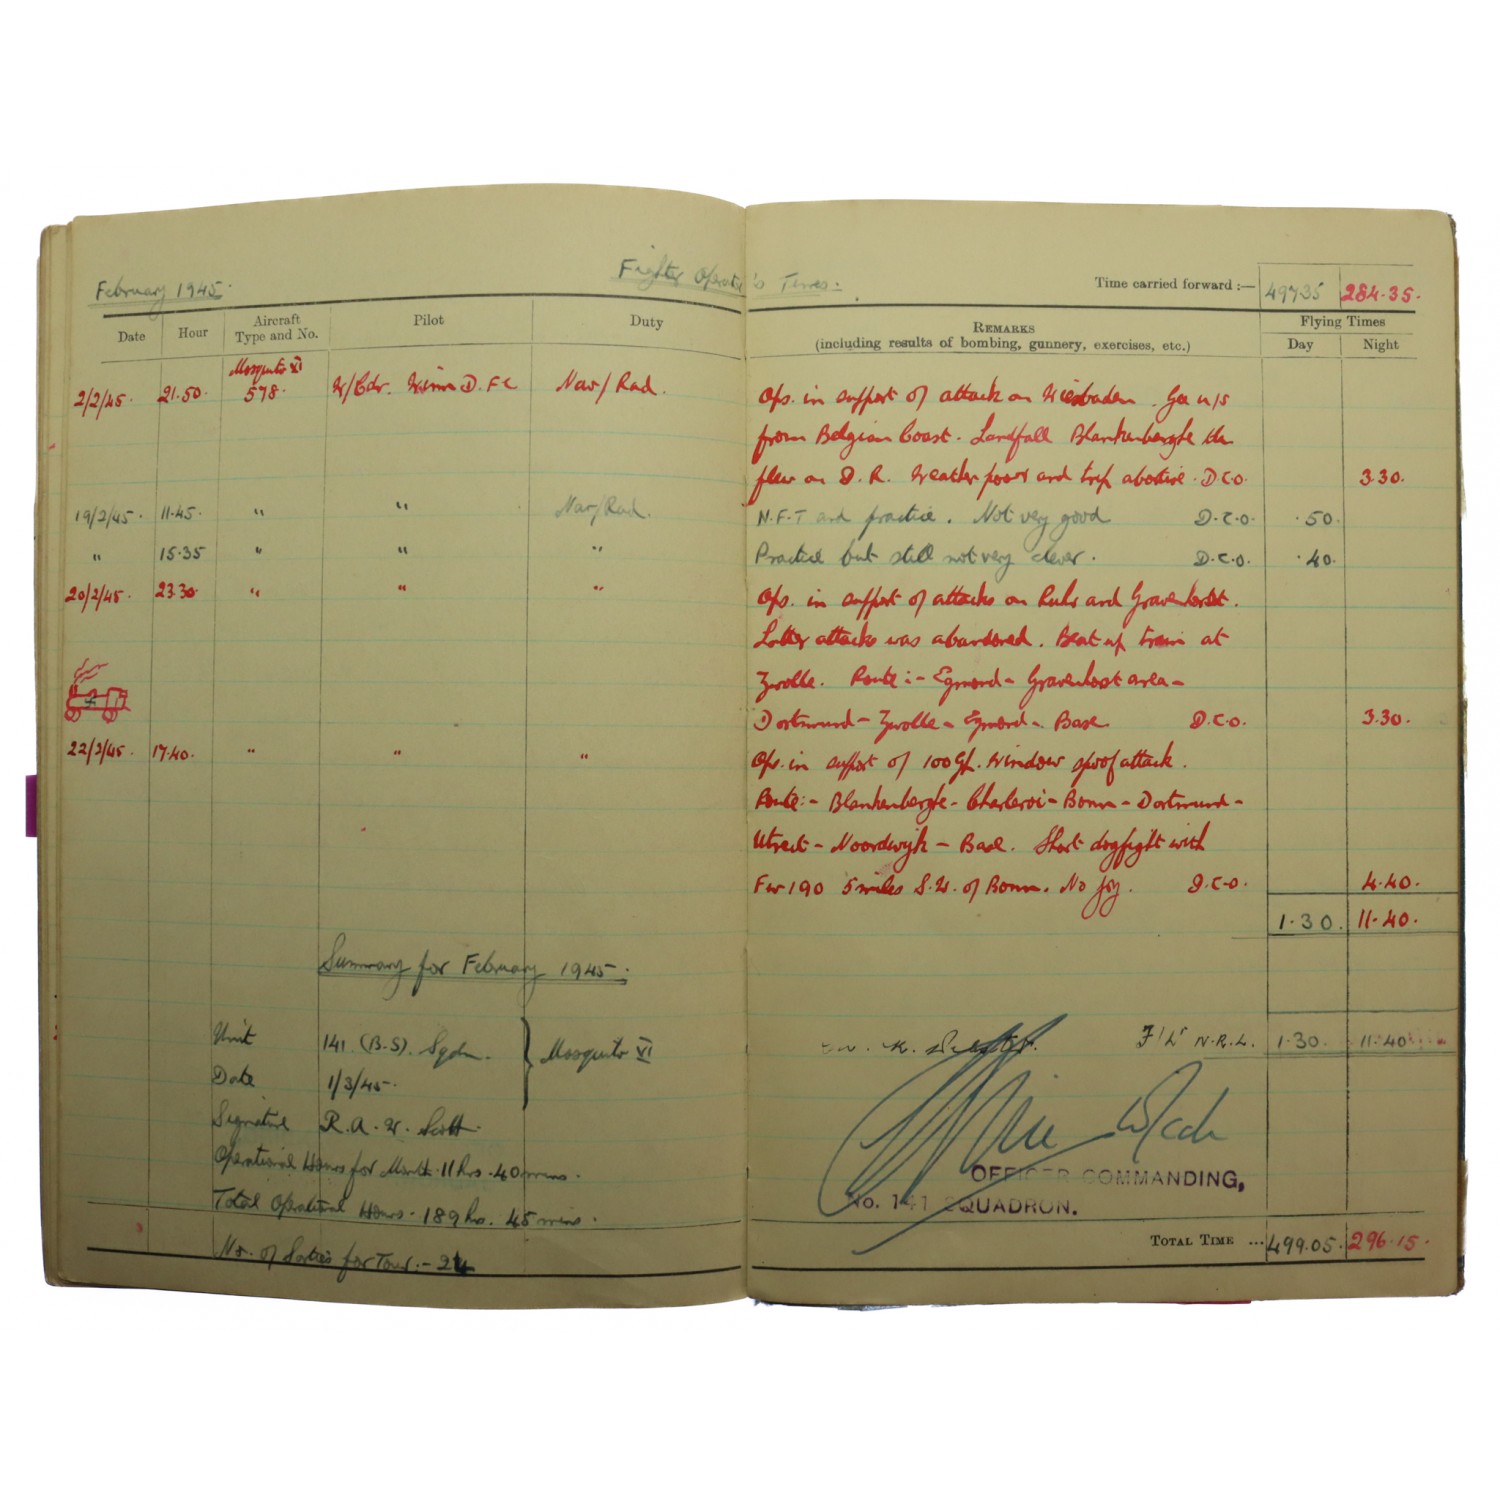 February 1945.
Fighter Operator's Times:
Time carried forward :— 497.35 284.35.
Date Hour Aircraft Type and No. Pilot Duty
REMARKS (including results of bombing, gunnery, exercises, etc.)
Flying Times
Day Night
Mosquito VI
2/2/45. 21.50. 578. W/Cdr. Winn D.F.C Nav/Rad. Ops. in support of attack on Wiesbaden. Gee u/s
from Belgian Coast. Landfall Blankenberghe then
flew on D.R. Weather poor and trip abortive. D.C.O. 3.30.
19/2/45. 11.45. " " Nav/Rad. N.F.T and practice. Not very good D.C.O. .50.
" 15.35 " " " Practice but still not very clever. D.C.O. .40.
20/2/45. 23.30. " " " Ops. in support of attacks on Ruhr and Gravenhorst.
Latter attacks was abandoned. Beat up train at
Zwolle. Route :- Egmond - Gravenhost area -
Dortmund - Zwolle - Egmond - Base D.C.O. 3.30.
22/2/45. 17.40. " " " Ops. in support of 100 Gp. window spoof attack.
Route:- Blankenberghe - Charleroi - Bonn - Dortmund -
Utrect - Noordwijk - Base. Short dogfight with
Fw 190 5 miles S.W. of Bonn. No joy. D.C.O. 4.40.
1.30. 11.40.
Summary for February 1945.
Unit 141 (B.S). Sqdn. } Mosquito VI
Date 1/3/45.
Signature R.A.W. Scott.
Operational Hours for Month. 11 hrs. 40 mins.
Total Operational Hours. 189 hrs. 45 mins.
No. of Sorties for Tour. - 24
F/Lt N.R.L. 1.30. 11.40
OFFICER COMMANDING,
No. 141 SQUADRON.
TOTAL TIME ... 499.05. 296.15.